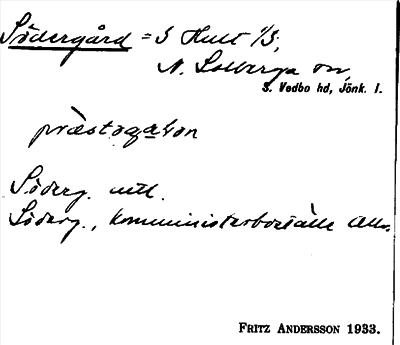 Södergård = S Hult 1/3,
N. Solberga sn,
S. Vedbo hd, Jönk. l.
præstogaḷon
Söderg. utt.
Söderg., kommunisterboställe Allm.
FRITZ ANDERSSON 1933.